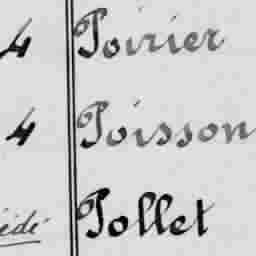 4 Poirier
4 Poisson
Pollet